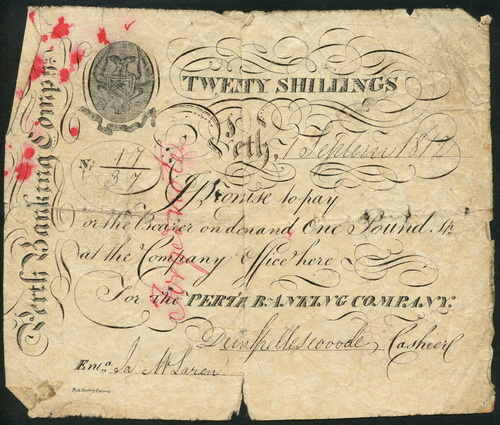 Perth Banking Company
TWENTY SHILLINGS
Perth, 1 Septem 1812
No 17
37
I Promise to pay
or the Bearer on demand One Pound Str
at the Company Office here
For the PERTH BANKING COMPANY.
Cashier
Entd Ja McLaren
Forged note